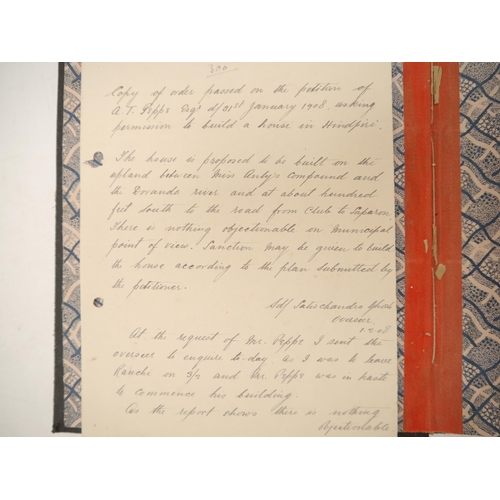 300
Copy of order passed on the petition of
A. T. Peppe Esqr d/ 31st January 1908, asking
permission to build a house in Hindpiri.
The house is proposed to be built on the
upland between Miss Auty's Compound and
the Doranda river and at about hundred
feet south to the road from Club to Saparom.
There is nothing objectionable in Municipal
point of view. Sanction may be given to build
the house according to the plan submitted by
the petitioner.
Sd/ Satischandra Ghosh
Overseer
1-2-08
At the request of Mr. Peppe I sent the
overseer to enquire to-day as I was to leave
Ranchi on 3/2 and Mr. Peppe was in haste
to commence his building.
As the report shows there is nothing
Objectionable